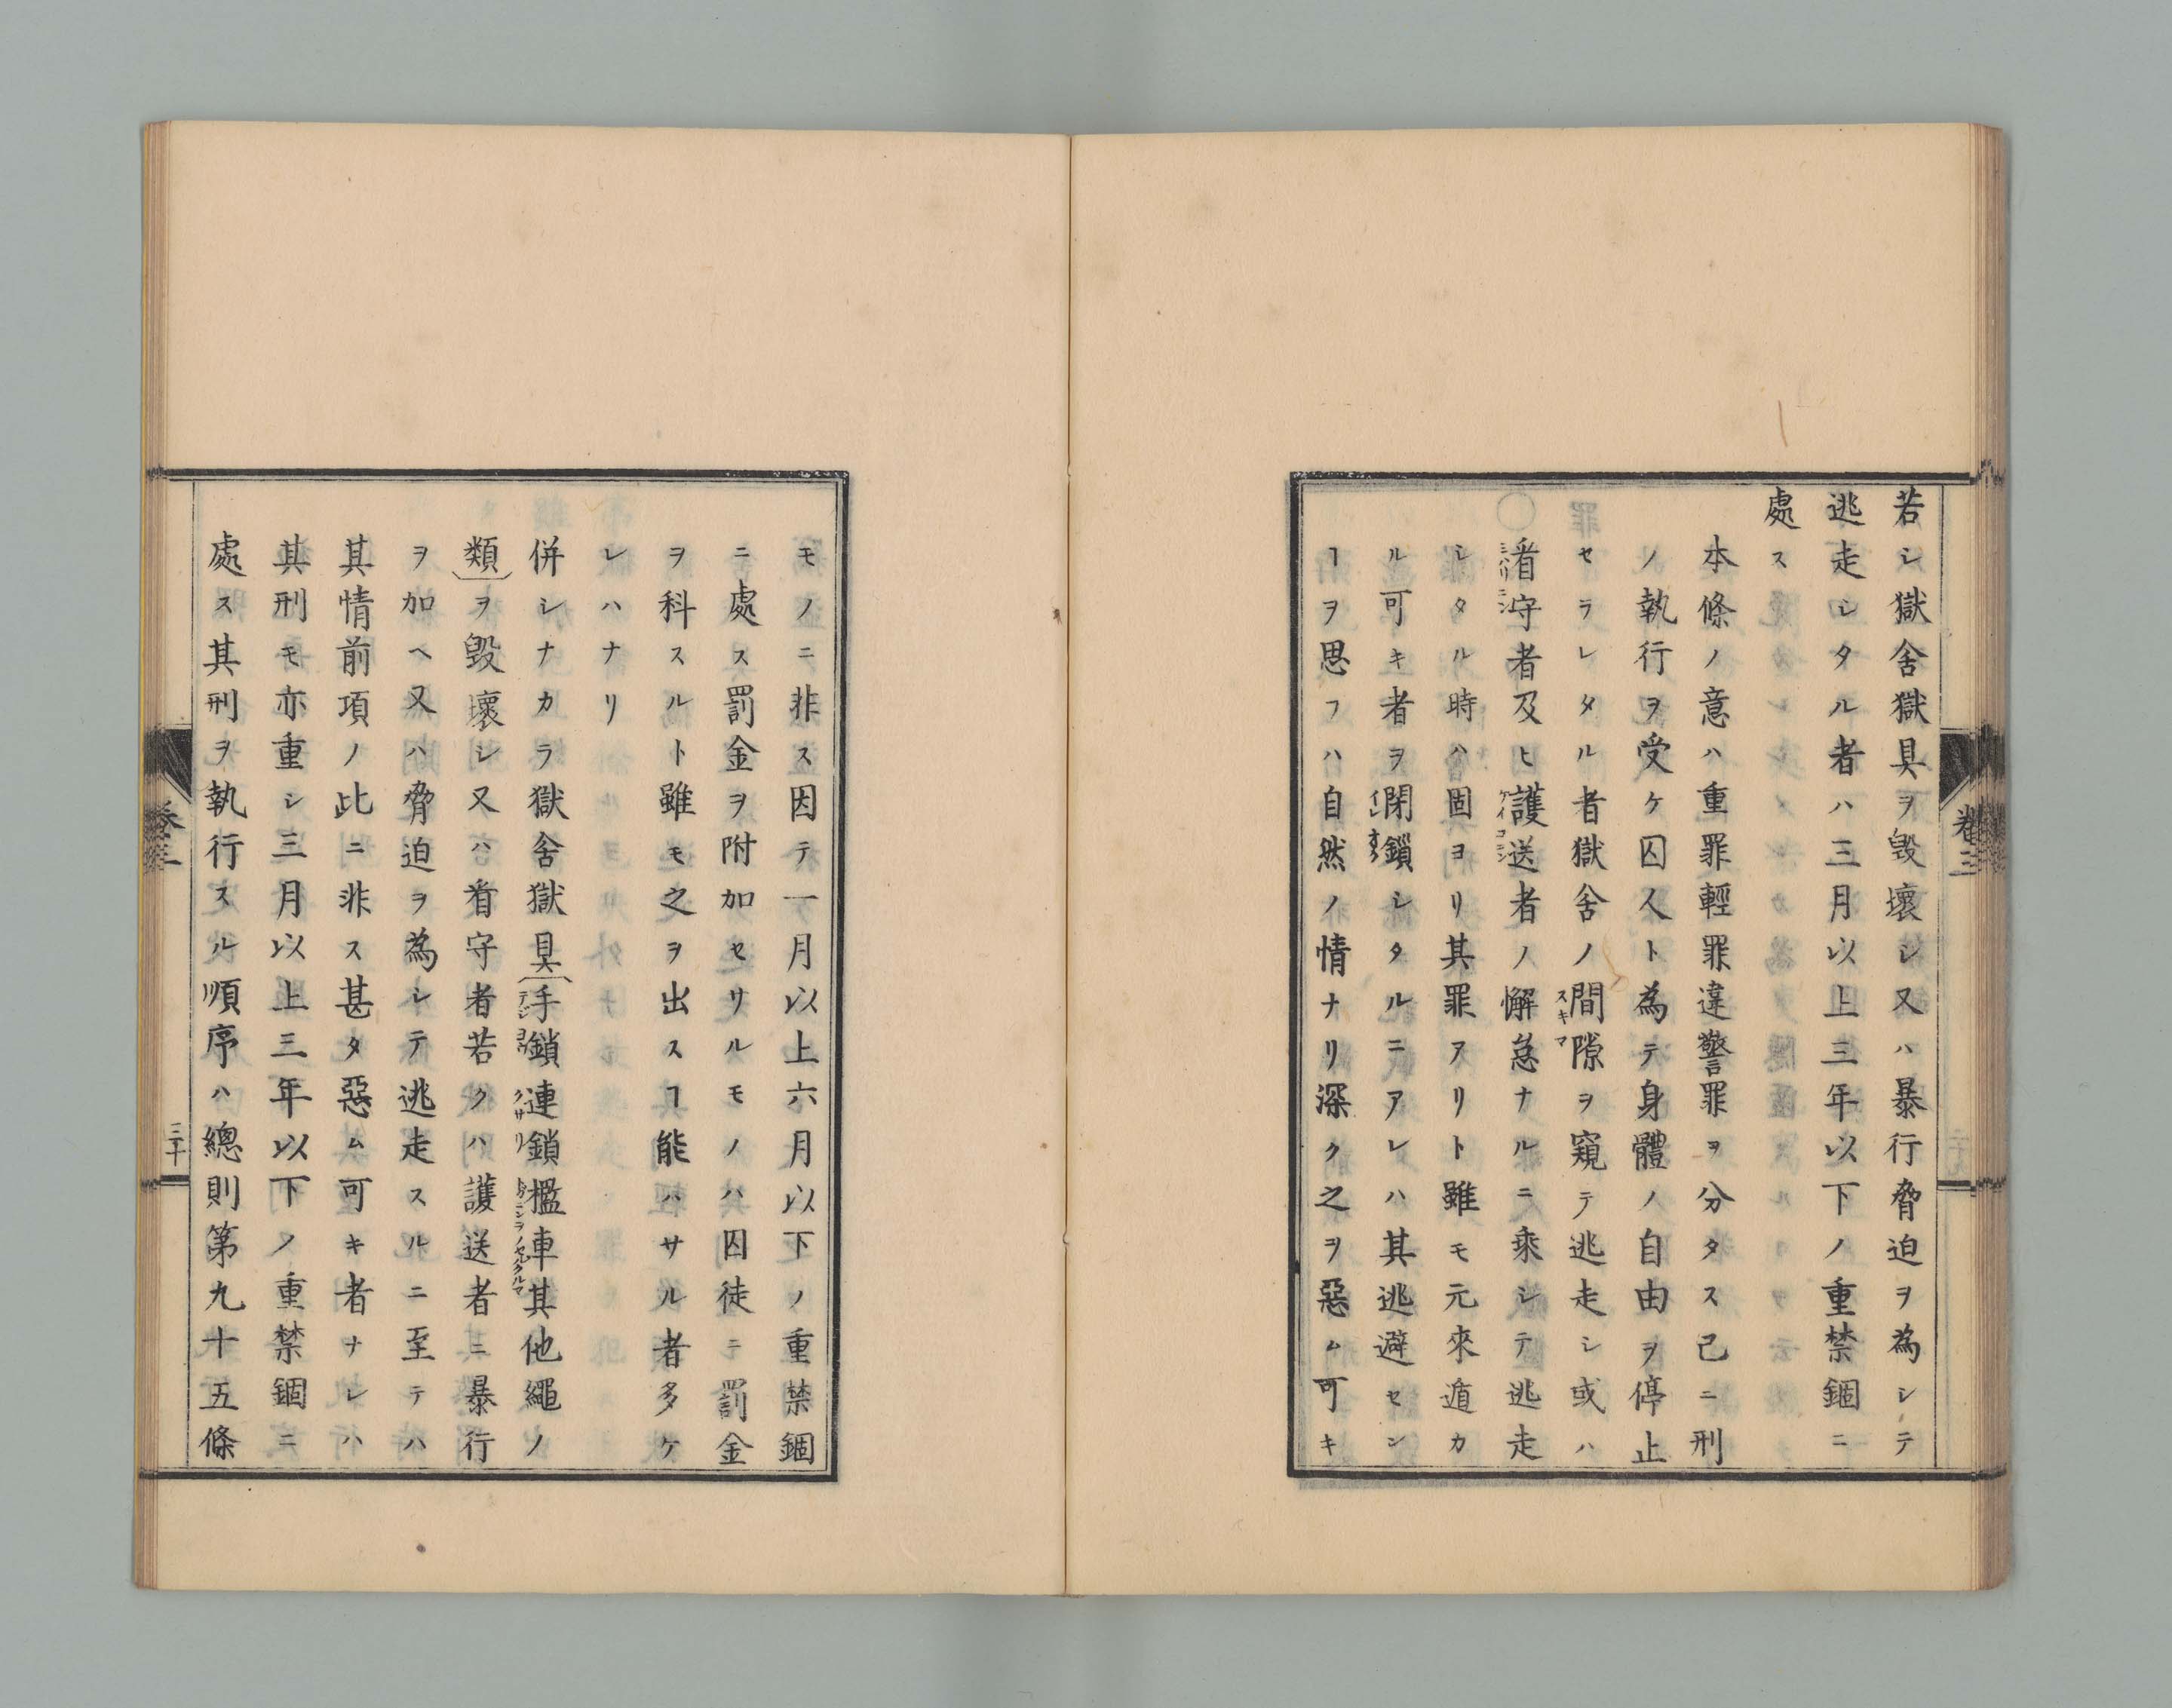 若シ獄舍獄具ヲ毀壞シ又ハ暴行脅迫ヲ為シテ
逃走シタル者ハ三月以上三年以下ノ重禁錮ニ
處ス
本條ノ意ハ重罪輕罪違警罪ヲ分タス已ニ刑
ノ執行ヲ受ケ囚人ト為テ身體ノ自由ヲ停止
セラレタル者獄舍ノ間隙ヲ窺テ逃走シ或ハ
看守者及ヒ護送者ノ懈怠ナルニ乘シテ逃走
シタル時ハ固ヨリ其罪アリト雖モ元來遁カ
ル可キ者ヲ閉鎖シタルニアレハ其逃避セン
ヿヲ思フハ自然ノ情ナリ深ク之ヲ惡ム可キ
卷三
モノニ非ス因テ一月以上六月以下ノ重禁錮
ニ處ス罰金ヲ附加セサルモノハ囚徒ニ罰金
ヲ科スルト雖モ之ヲ出スヿ能ハサル者多ケ
レハナリ
併シナカラ獄舍獄具(手鎖連鎖檻車其他繩ノ
類)ヲ毀壞シ又ハ看守者若クハ護送者ニ暴行
ヲ加ヘ又ハ脅迫ヲ為シテ逃走スルニ至テハ
其情前項ノ此ニ非ス甚タ惡ム可キ者ナレハ
其刑モ亦重シ三月以上三年以下ノ重禁錮ニ
處ス其刑ヲ執行スル順序ハ總則第九十五條
卷三
三十